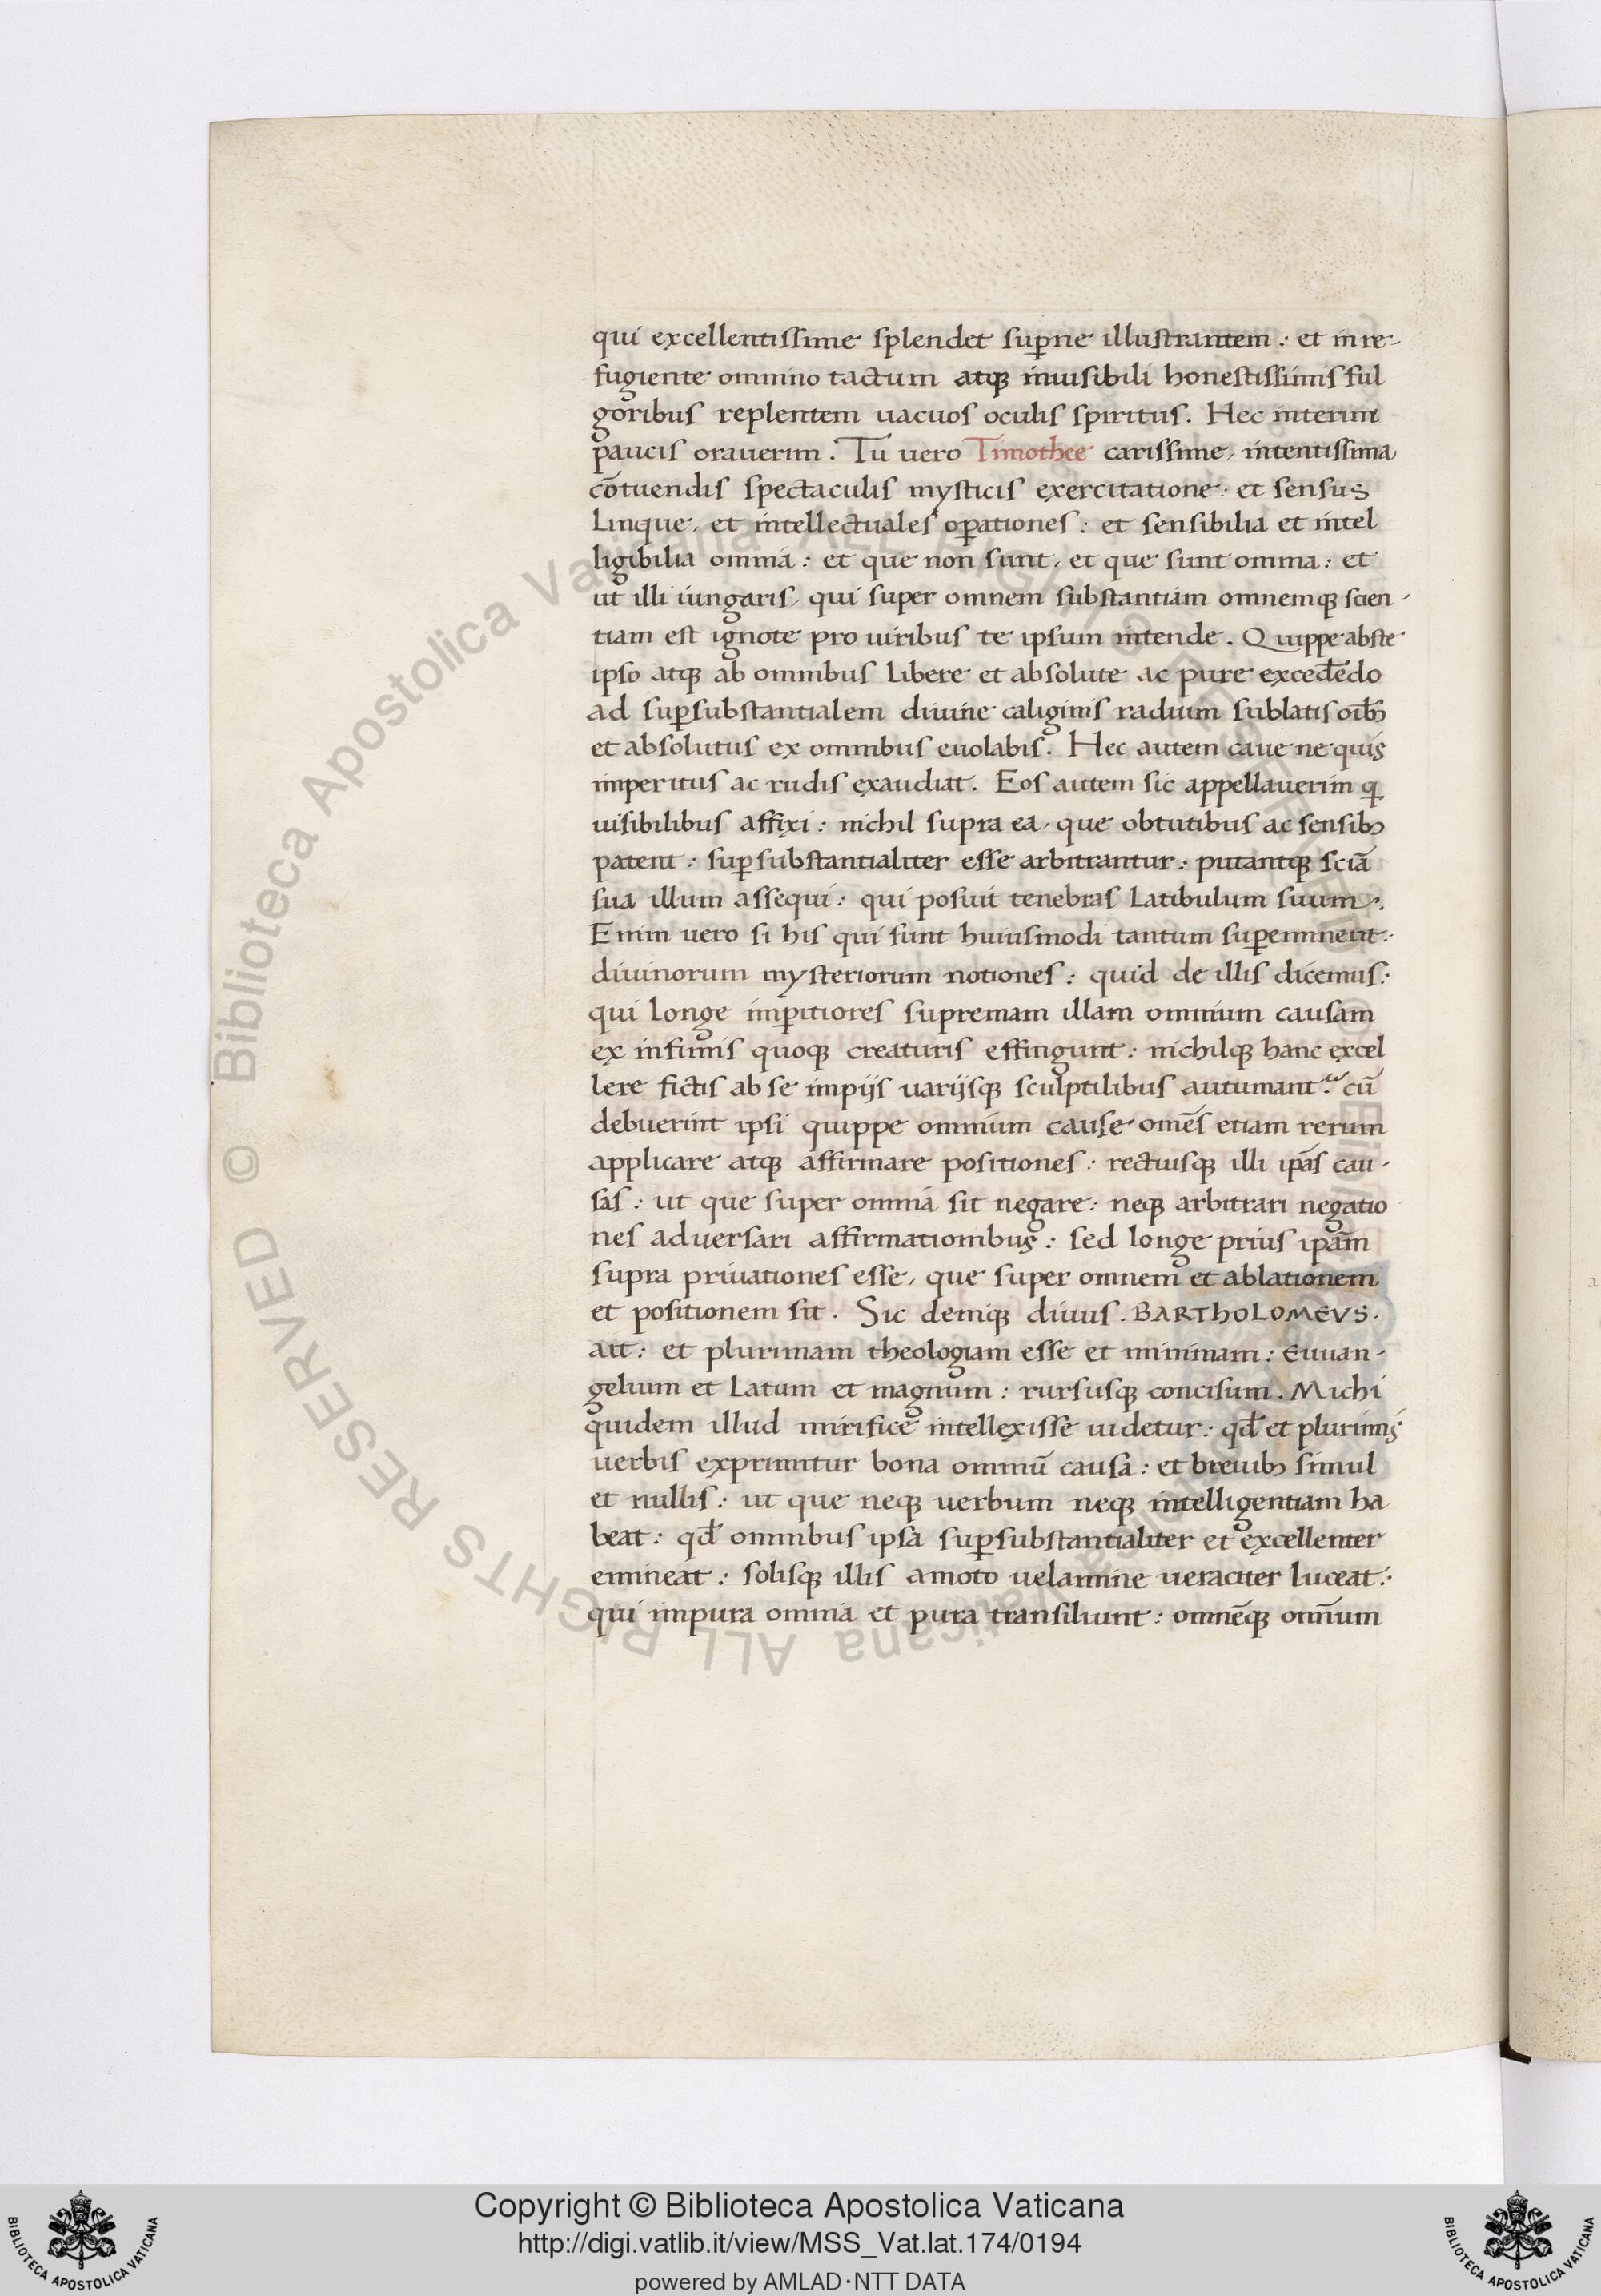 qui excellentissime splendet sup̱ne illustrantem : et in re-
fugiente omnino tactum atqꝫ inuisibili honestissimis ful
goribus replentem uacuos oculis spiritus. Hec interim
paucis orauerim. Tu uero Timothee carissime, intentissima
cōtuendis spectaculis mysticis exercitatione· et sensus
Linque, et intellectuales oꝑationes : et sensibilia et intel
ligibilia omnia : et que non sunt, et que sunt omnia : et
ut illi iungaris, qui super omnem substantiam omnemqꝫ scien-
tiam est ignote pro uiribus te ipsum intende. Quippe abste
ipso atqꝫ ab omnibus Libere et absolute ac pure excedēdo
ad suꝑsubstantialem diuine caliginis radium sublatis oībꝫ
et absolutus ex omnibus euolabis. Hec autem caue ne quis
imperitus ac rudis exaudiat. Eos autem sic appellauerim qͥ
uisibilibus affixi : nichil supra ea, que obtutibus ac sensibꝫ
patent : suꝑsubstantialiter esse arbitrantur : putantqꝫ sciā
sua illum assequi : qui posuit tenebras Latibulum suum.
Enim uero si his qui sunt huiusmodi tantum suꝑeminent :
diuinorum mysteriorum notiones : quid de illis dicemus :
qui longe imꝑitiores supremam illam omnium causam
ex infimis quoqꝫ creaturis effingunt : nichilqꝫ hanc excel
lere fictis ab se impijs uarijsqꝫ sculptilibus autumant : cū
debuerint ipsi quippe omnium cause omēs etiam rerum
applicare atqꝫ affirmare positiones : rectiusqꝫ illi ip̄as cau-
sas : ut que super omnia sit negare : neqꝫ arbitrari negatio
nes aduersari affirmationibus : sed longe prius ip̄am
supra priuationes esse, que super omnem et ablationem
et positionem sit. Sic deniqꝫ diuus. BARTHOLOMEVS.
ait : et plurimam theologiam esse et minimam : Euuan-
gelium et Latum et magnum : rursusqꝫ concisum. Michi
quidem illud mirifice intellexisse uidetur : qd̄ et plurimis
uerbis exprimitur bona omniū causa : et breuibꝫ simul
et nullis : ut que neqꝫ uerbum neqꝫ intelligentiam ha
beat : qd̄ omnibus ipsa suꝑsubstantialiter et excellenter
emineat : solisqꝫ illis amoto uelamine ueraciter luceat :
qui impura omnia et pura transiliunt : omnēqꝫ om̄ium
© Biblioteca Apostolica Vaticana ALL RIGHTS RESERVED
Copyright © Biblioteca Apostolica Vaticana
http://digi.vatlib.it/view/MSS_Vat.lat.174/0194
powered by AMLAD·NTT DATA
BIBLIOTECA APOSTOLICA VATICANA
BIBLIOTECA APOSTOLICA VATICANA